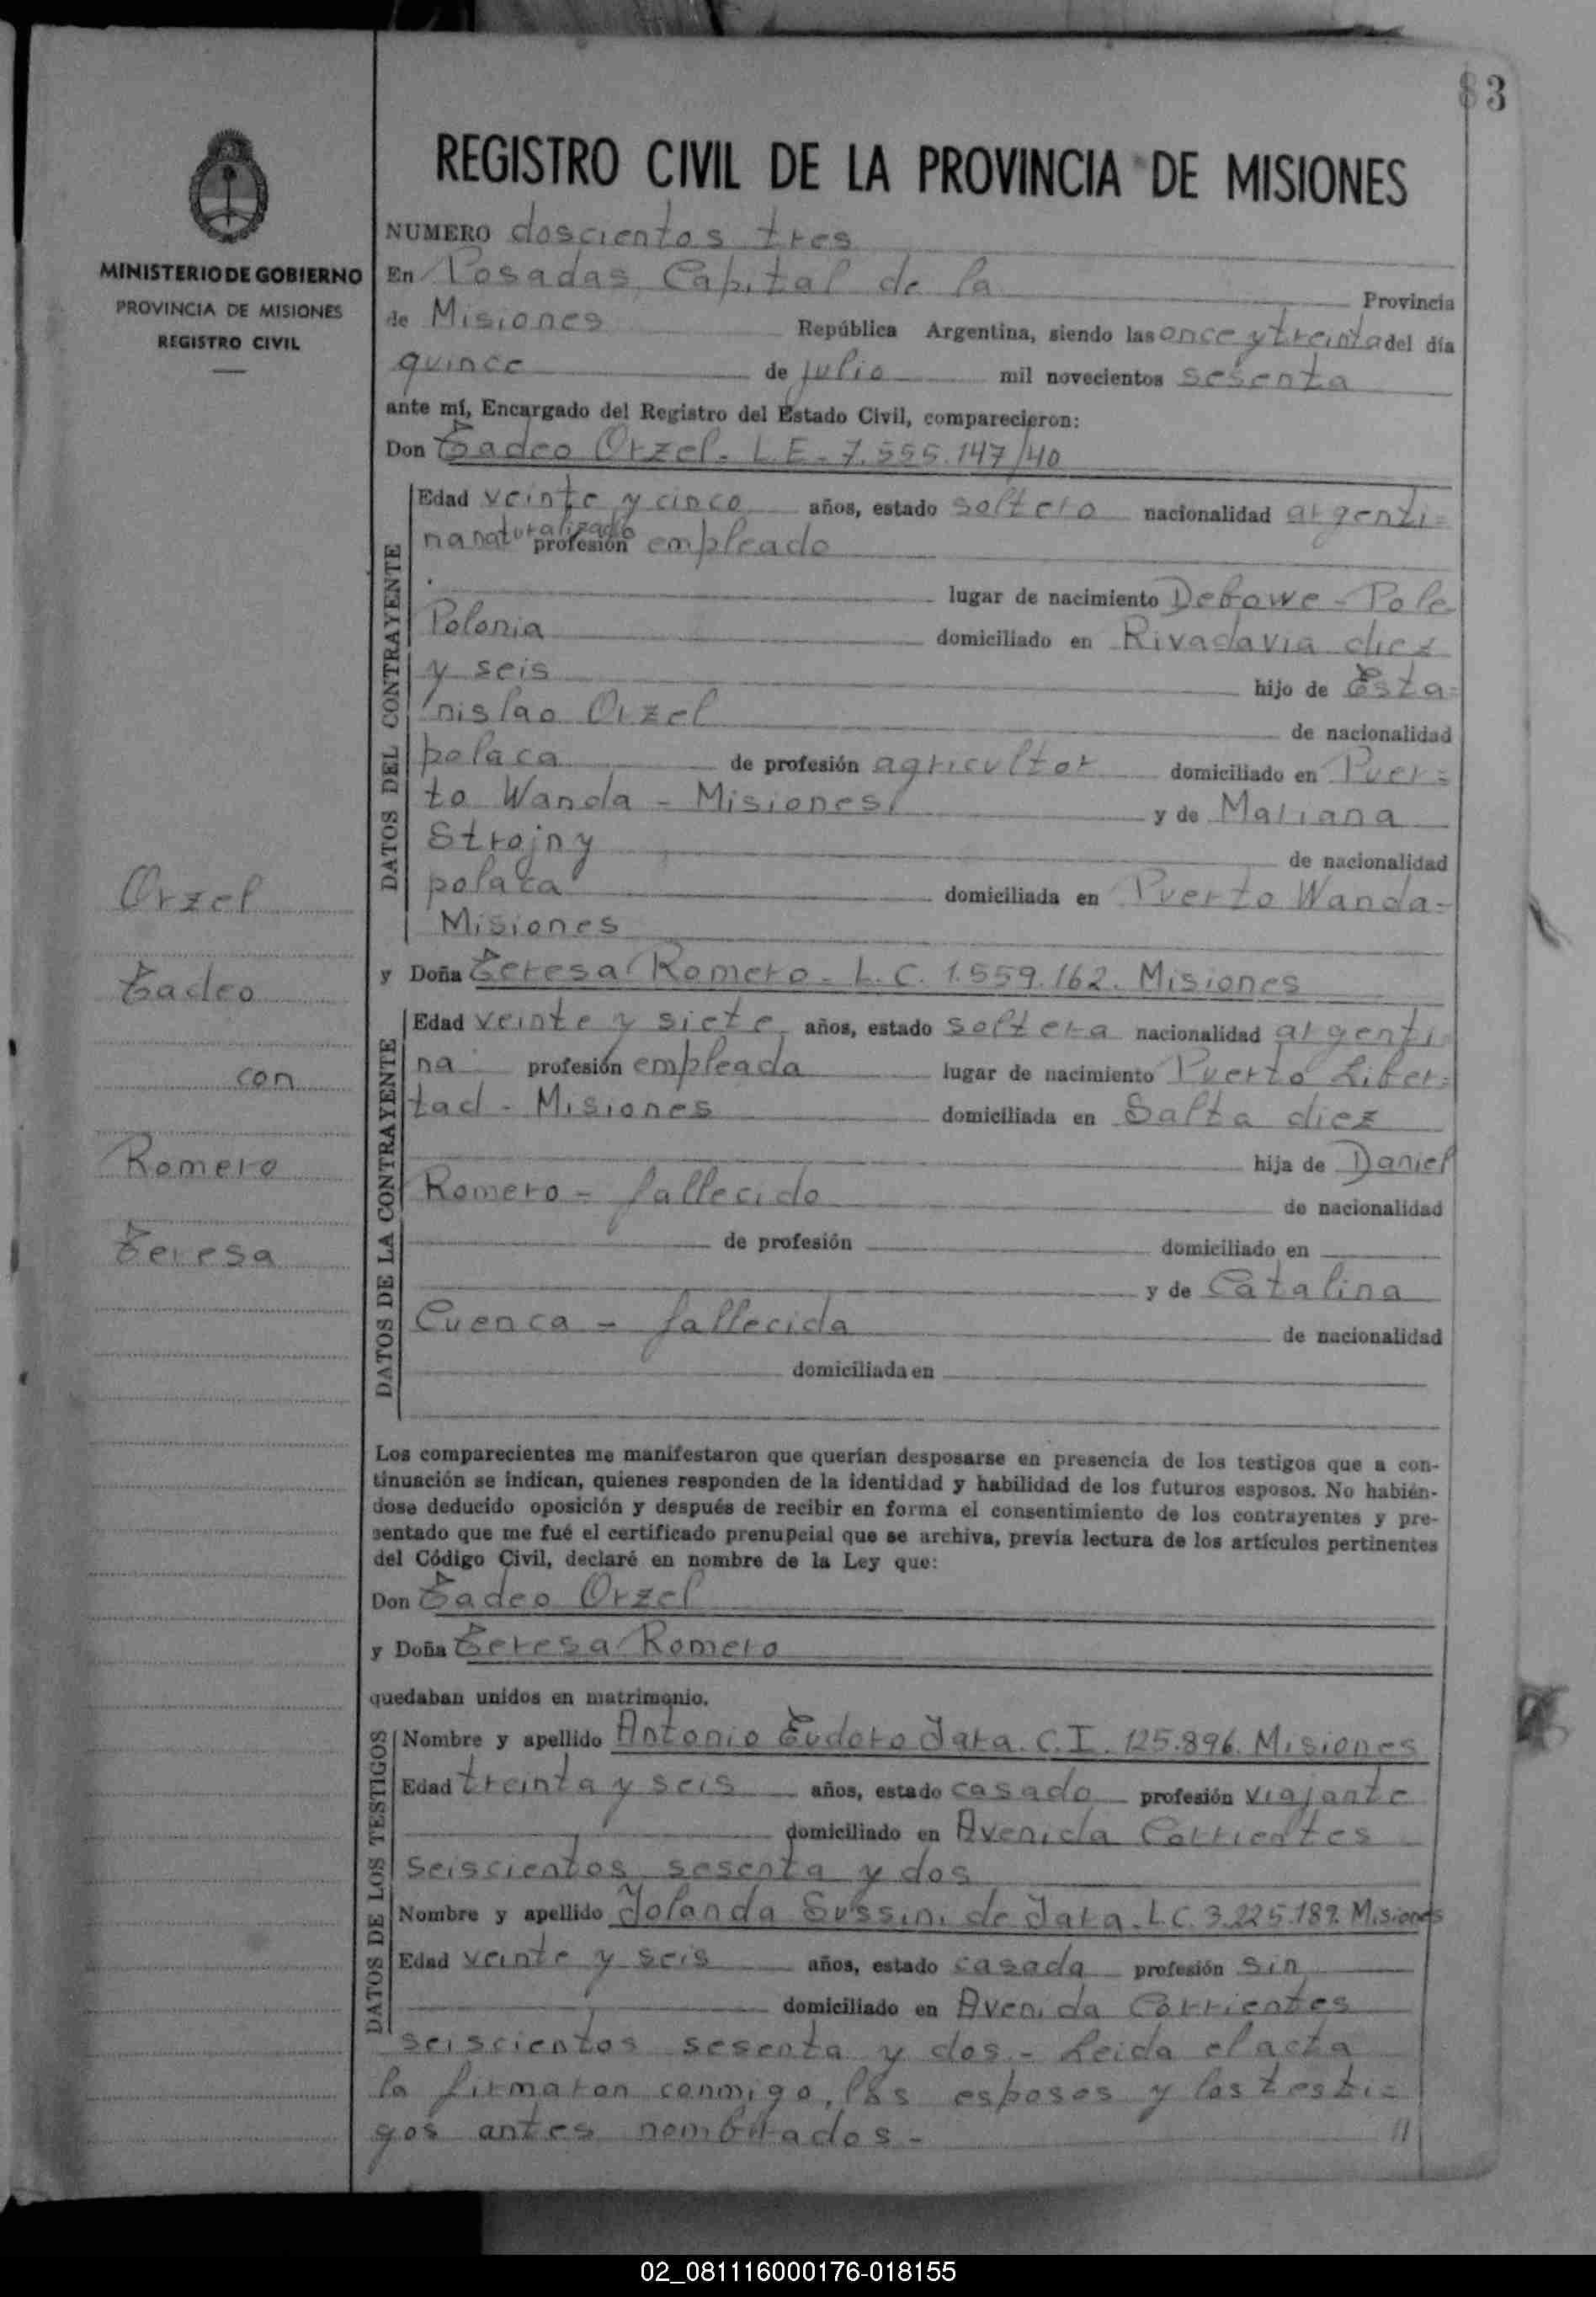 83
REGISTRO CIVIL DE LA PROVINCIA DE MISIONES
MINISTERIO DE GOBIERNO
PROVINCIA DE MISIONES
REGISTRO CIVIL
NUMERO doscientos tres
En Posadas, Capital de la Provincia
de Misiones República Argentina, siendo las once y treinta del día
quince de julio mil novecientos sesenta
ante mí, Encargado del Registro del Estado Civil, comparecieron:
Don Tadeo Orzel. L.E. 7.555.147/40
DATOS DEL CONTRAYENTE
Edad veinte y cinco años, estado soltero nacionalidad argenti=
na naturalizado profesión empleado
lugar de nacimiento Debowe - Pole
Polonia domiciliado en Rivadavia diez
y seis hijo de Esta=
nislao Orzel de nacionalidad
polaca de profesión agricultor domiciliado en Puer=
to Wanda - Misiones y de Mariana
Strojny de nacionalidad
polaca domiciliada en Puerto Wanda=
Misiones
Orzel
Tadeo
con
Romero
Teresa
y Doña Teresa Romero - L.C. 1.559.162. Misiones
DATOS DE LA CONTRAYENTE
Edad veinte y siete años, estado soltera nacionalidad argenti
na profesión empleada lugar de nacimiento Puerto Liber=
tad - Misiones domiciliada en Salta diez
hija de Daniel
Romero = fallecido de nacionalidad
de profesión domiciliado en
y de Catalina
Cuenca - fallecida de nacionalidad
domiciliada en
Los comparecientes me manifestaron que querían desposarse en presencia de los testigos que a con-
tinuación se indican, quienes responden de la identidad y habilidad de los futuros esposos. No habién-
dose deducido oposición y después de recibir en forma el consentimiento de los contrayentes y pre-
sentado que me fué el certificado prenupcial que se archiva, previa lectura de los artículos pertinentes
del Código Civil, declaré en nombre de la Ley que:
Don Tadeo Orzel
y Doña Teresa Romero
quedaban unidos en matrimonio.
DATOS DE LOS TESTIGOS
Nombre y apellido Antonio Eudoro Jara. C.I. 125.896. Misiones
Edad treinta y seis años, estado casado profesión viajante
domiciliado en Avenida Corrientes
seiscientos sesenta y dos
Nombre y apellido Jolanda Sussini de Jara. L.C. 3.225.189. Misiones
Edad veinte y seis años, estado casada profesión sin
domiciliado en Avenida Corrientes
seiscientos sesenta y dos.- Leida el acta
la firmaron conmigo, los esposos y los testi=
gos antes nombrados - //
02_081116000176-018155